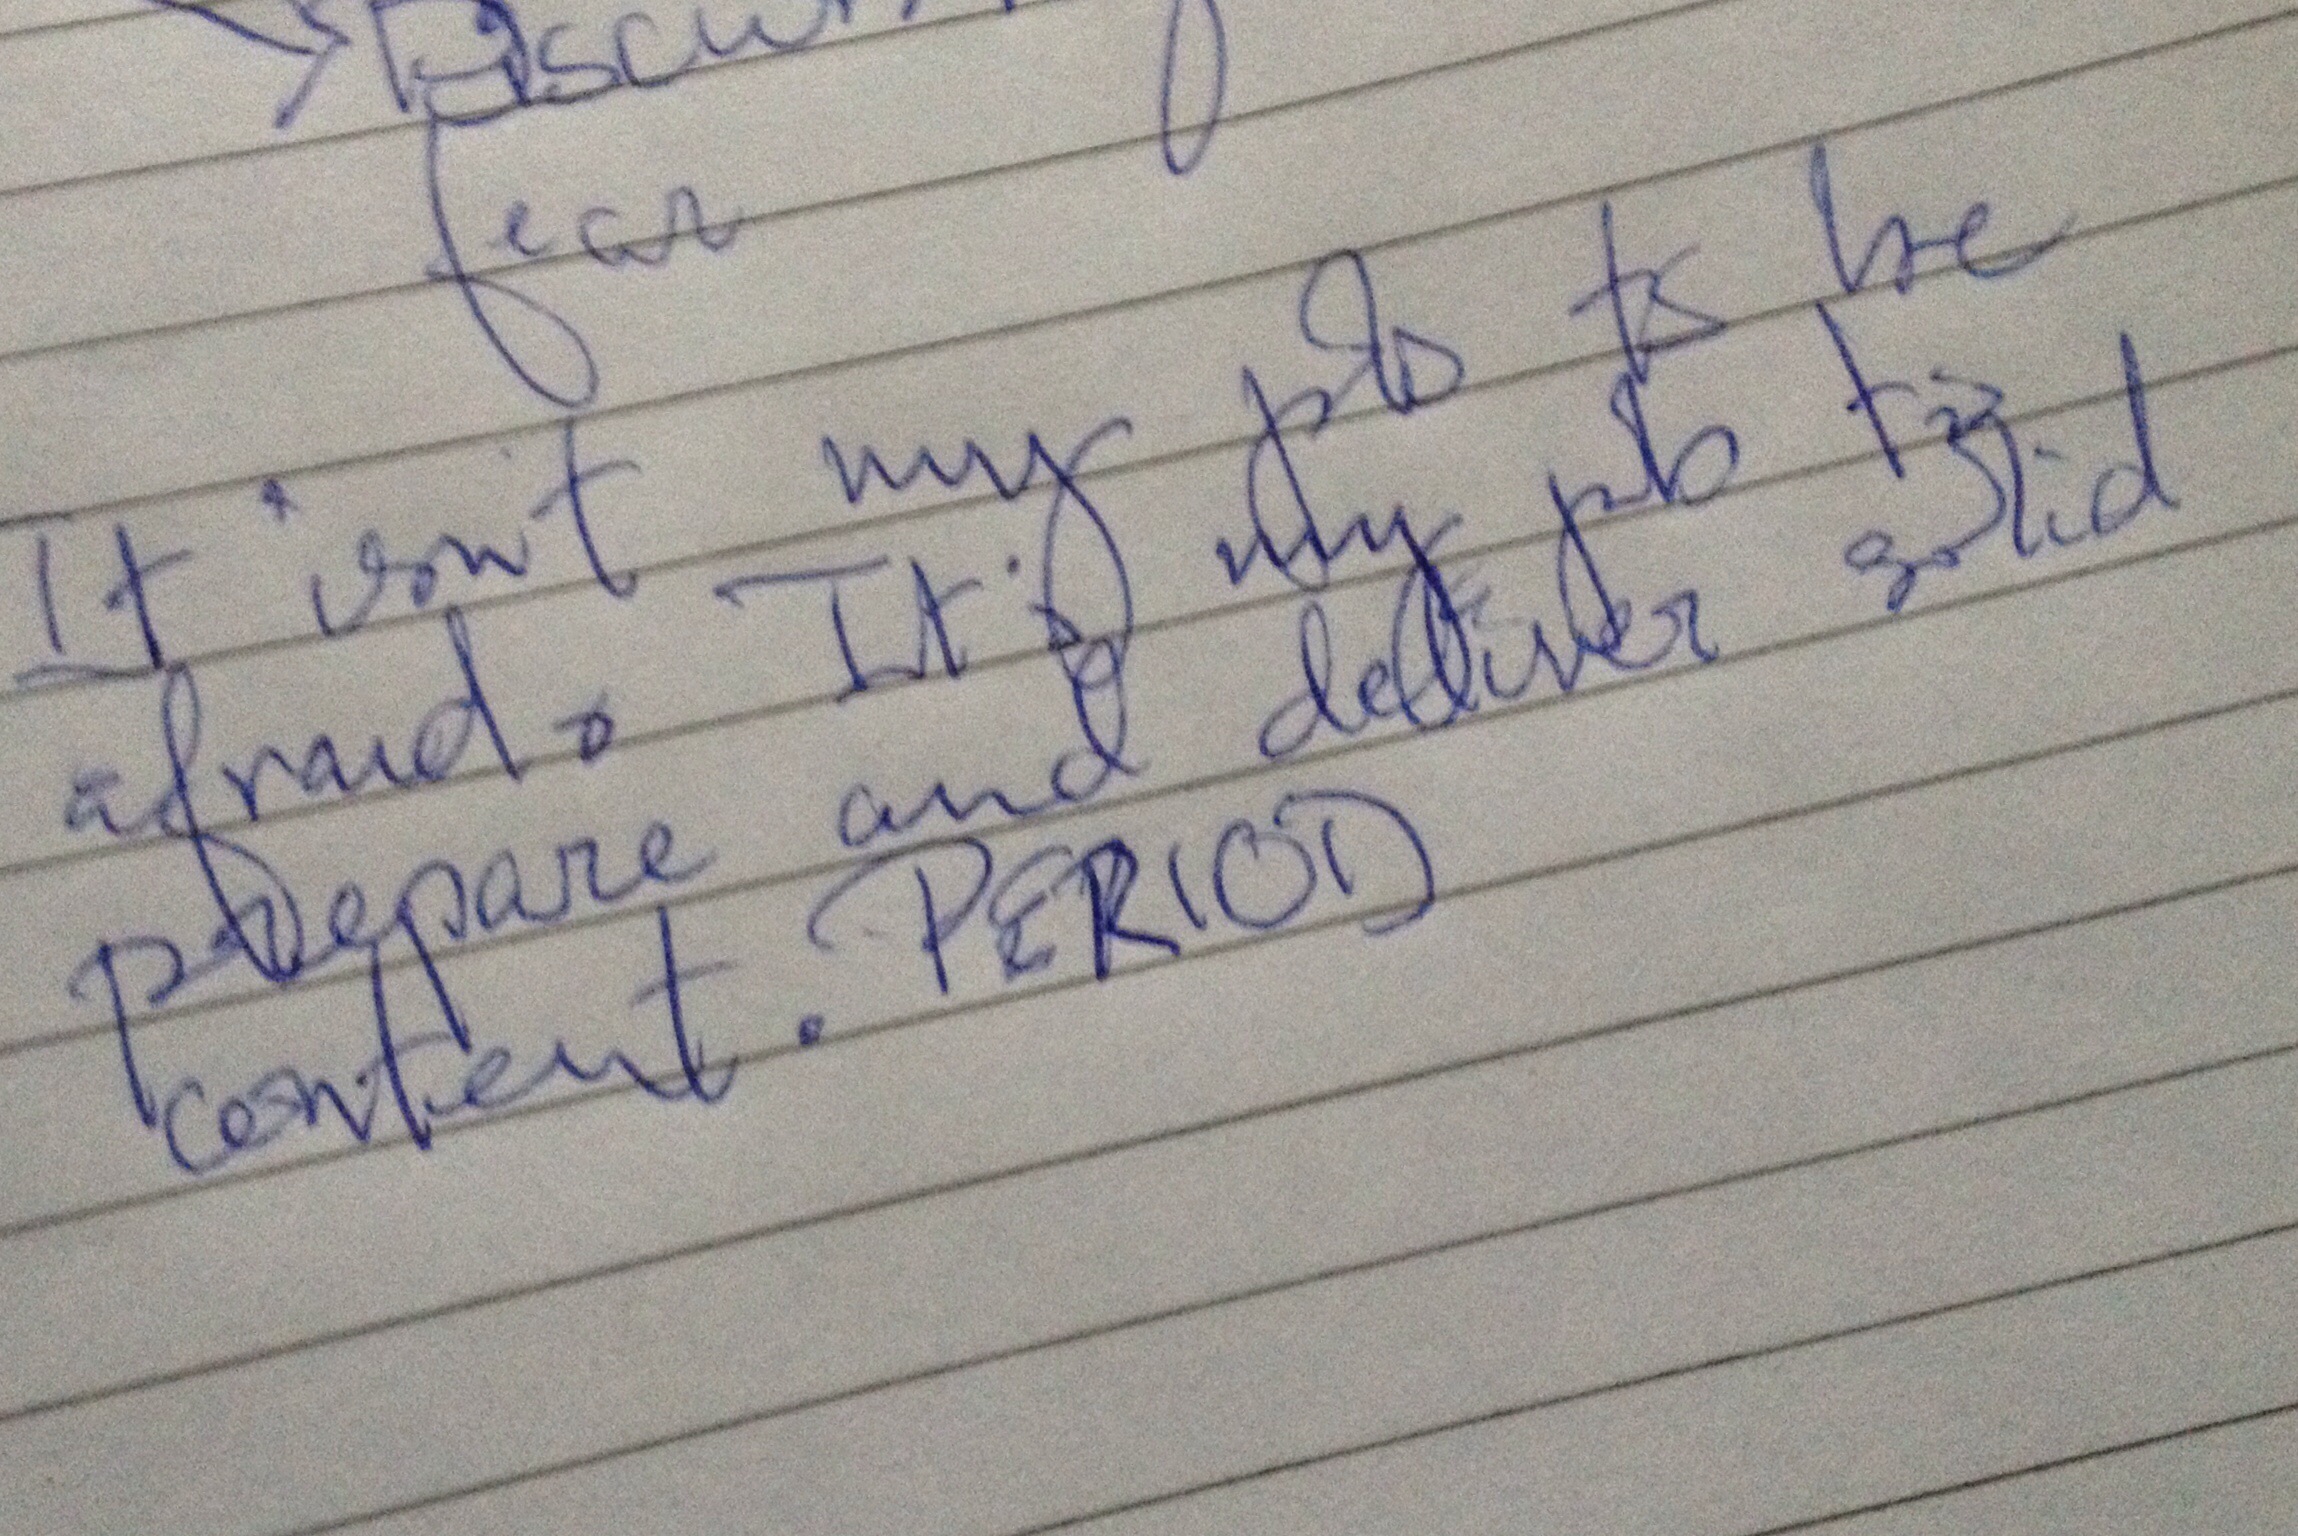 fear
It isn't my job to be
afraid. It is my job to
prepare and deliver solid
content. PERIOD